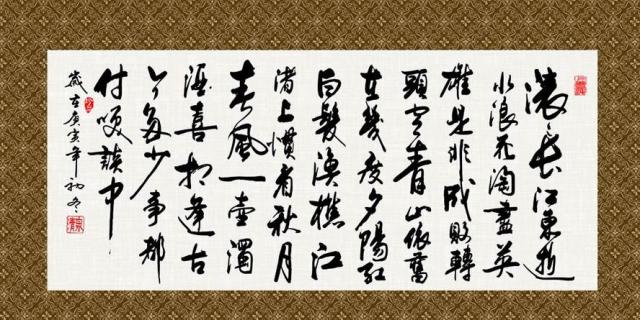 滚长江東逝
水浪花淘盡英
雄是非成敗轉
頭空青山依舊
在幾度夕陽紅
白髮漁樵江
渚上慣看秋月
春風一壺濁
酒喜相逢古
今多少事都
付笑談中
歲在庚寅年初冬